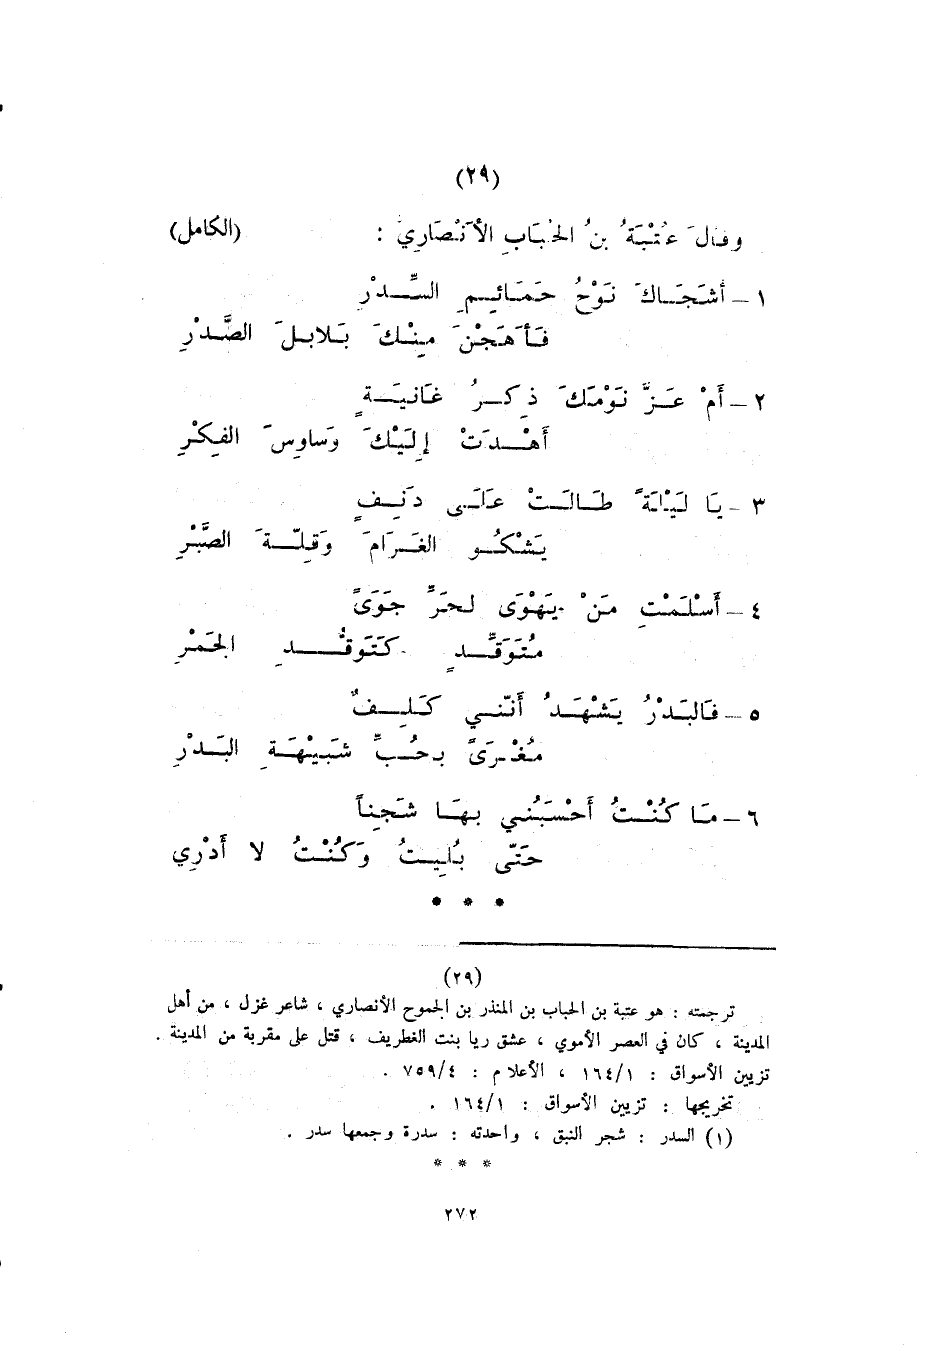 (٢٩)
وقالَ عُتْبَةُ بنُ الحُبَابِ الأَنْصَارِيُّ : (الكامل)
١ – أَشَجَاكَ نَوْحُ حَمَائِمِ السِّدْرِ
فَأَهَجْنَ مِنْكَ بَلابِلَ الصَّدْرِ
٢ – أَمْ عَزَّ نَوْمَكَ ذِكرُ غَانِيَةٍ
أَهْدَتْ إِلَيْكَ وَساوِسَ الفِكْرِ
٣ – يَا لَيْلَةً طَالَتْ عَلَى دَنِفٍ
يَشْكُو الغَرَامَ وَقِلَّةَ الصَّبْرِ
٤ – أَسْلَمْتِ مَنْ يَهْوَى لحَرِّ جَوَىً
مُتَوَقِّدٍ كَتَوَقُّدِ الجَمْرِ
٥ – فَالبَدْرُ يَشْهَدُ أَنَّني كَلِفٌ
مُغْرَىً بِحُبِّ شَبِيْهَةِ البَدْرِ
٦ – مَا كُنْتُ أَحْسَبُني بِهَا شَجِناً
حَتّى بُلِيتُ وَكُنْتُ لا أَدْرِي
* * *
(٢٩)
ترجمته : هو عتبة بن الحباب بن المنذر بن الجموح الأنصاري ، شاعر غزل ، من أهل
المدينة ، كان في العصر الأموي ، عشق ريا بنت الغطريف ، قتل على مقربة من المدينة .
تزيين الأسواق : ١٦٤/١ ، الأعلام : ٧٥٩/٤ .
تخريجها : تزيين الأسواق : ١٦٤/١ .
(١) السدر : شجر النبق ، واحدته : سدرة وجمعها سدر .
* * *
٢٧٢